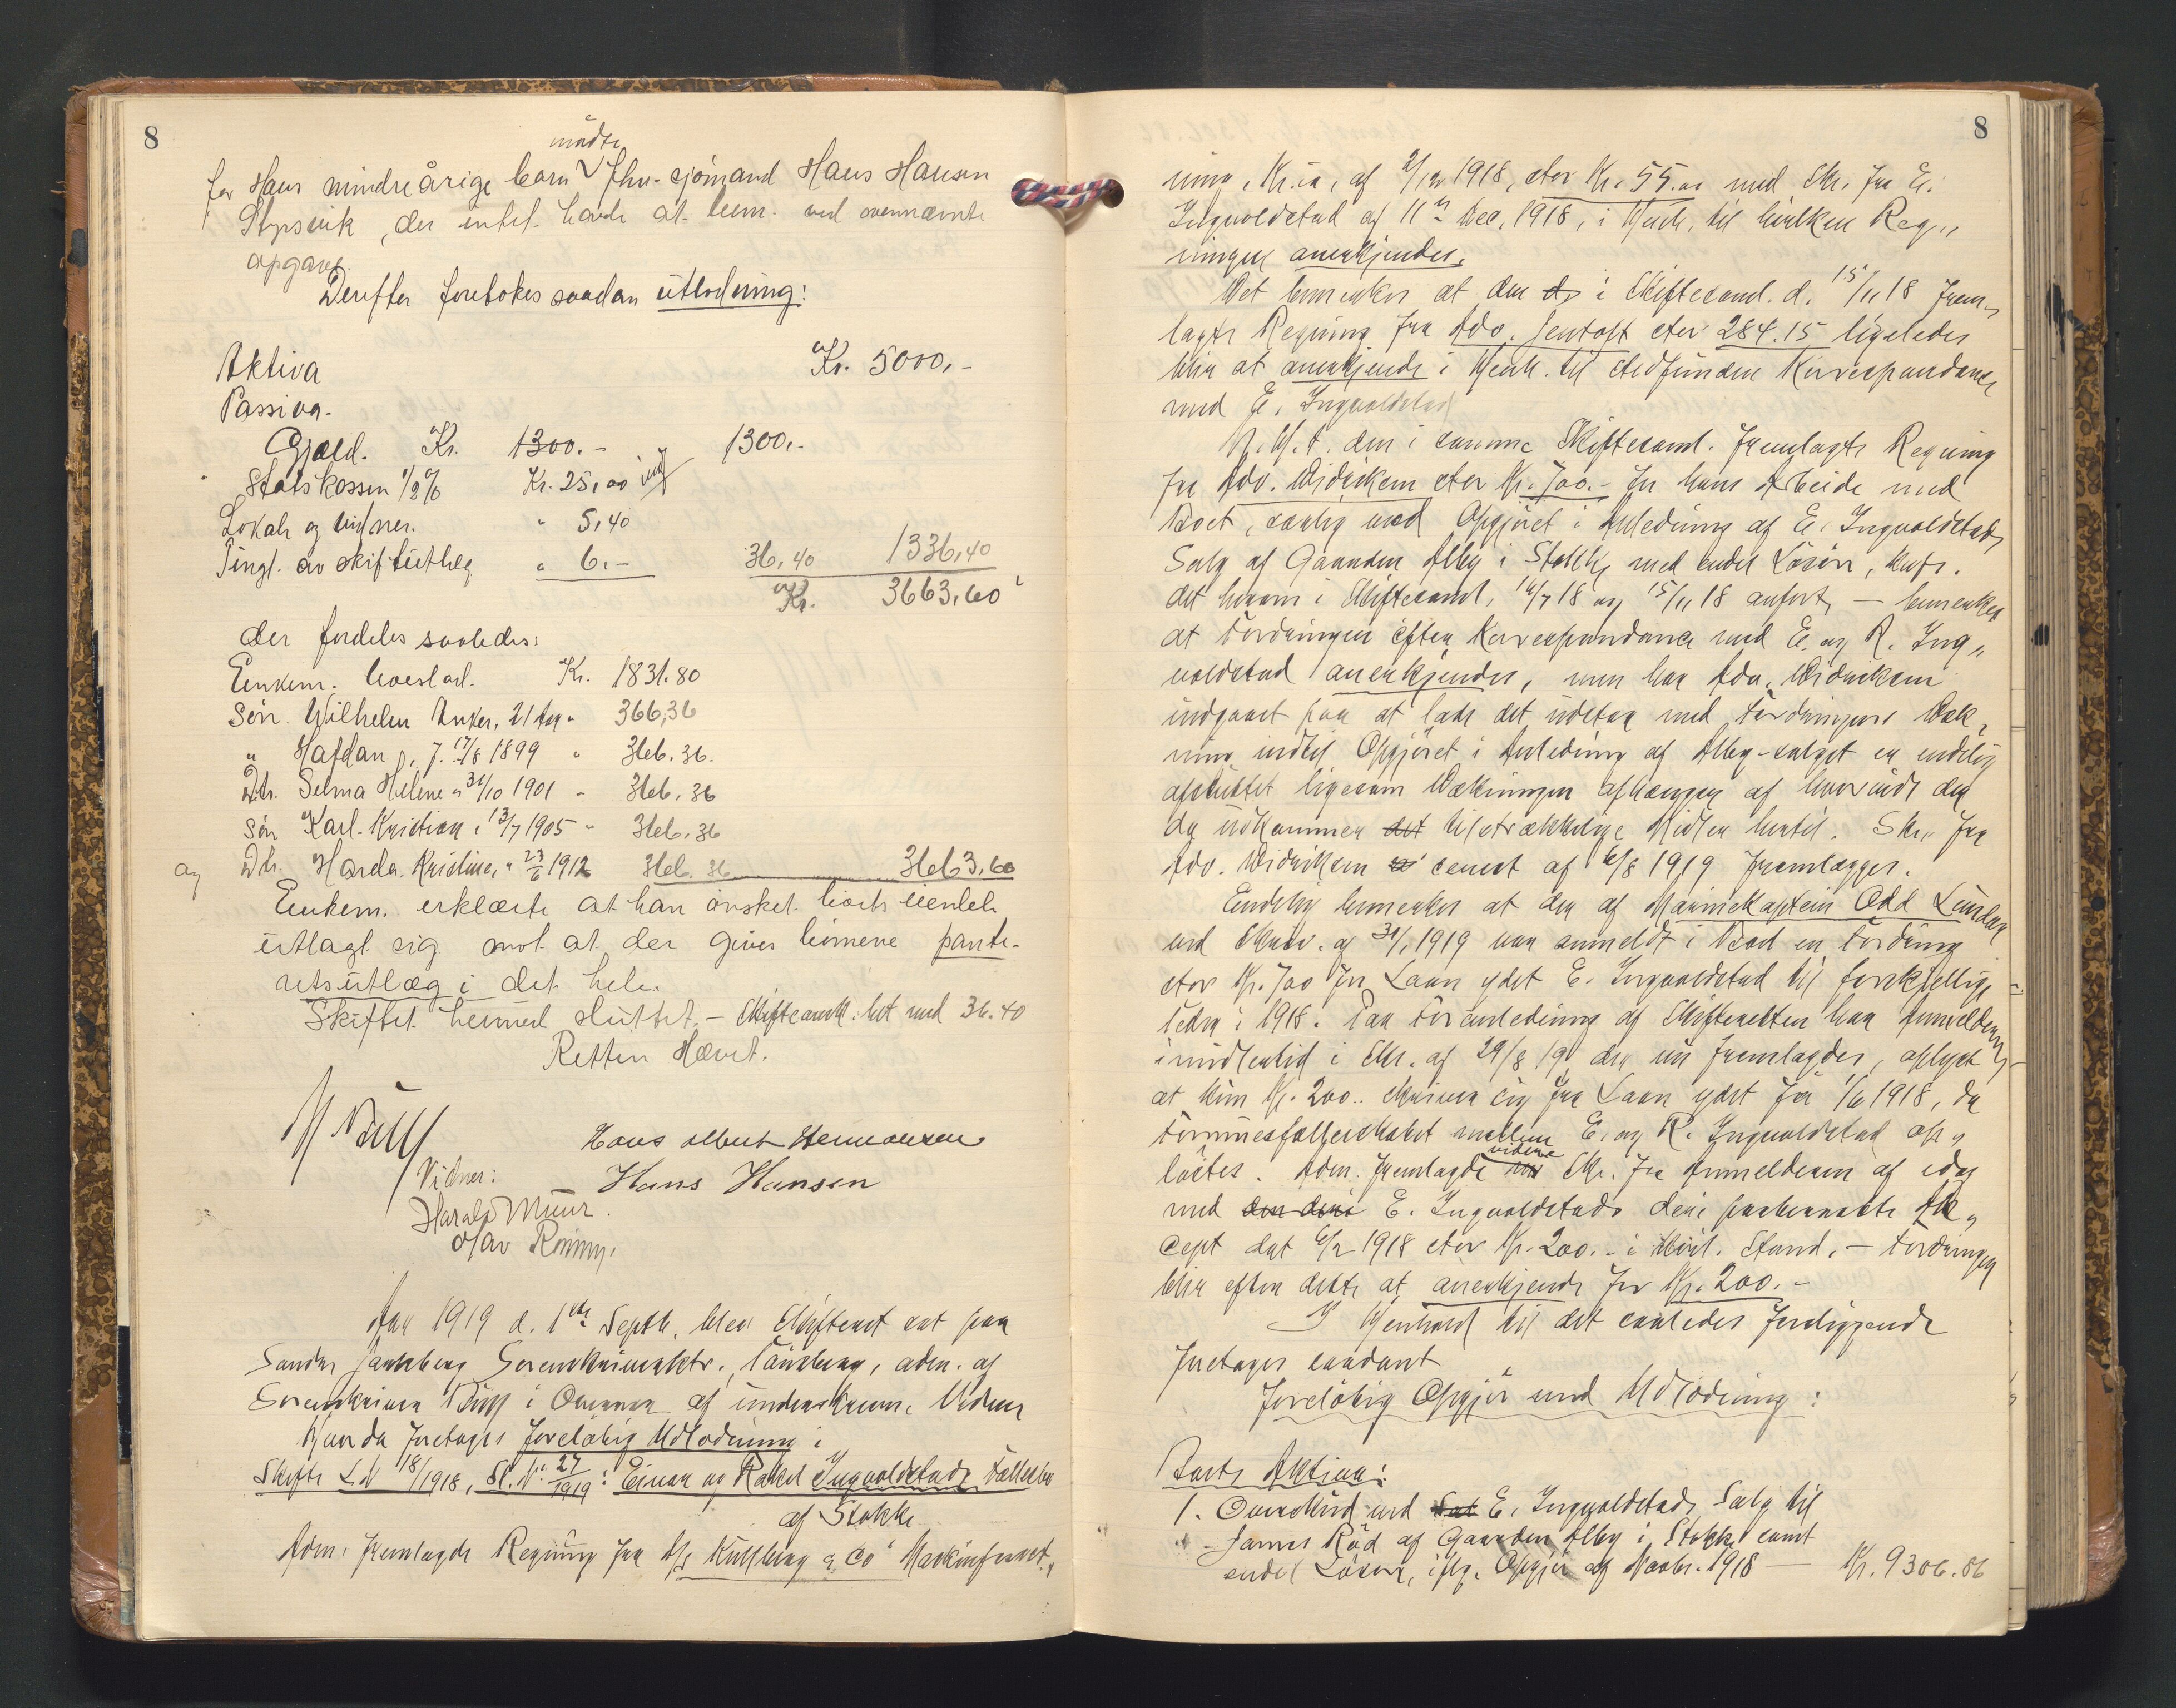 8
mødte
for Hans mindreårige barn fhv. sjømand Hans Hansen
, der intet havde at bem. ved ovennævnte
opgave.
Derefter foretokes saadan utlodning:
Aktiva Kr. 5000.-
Passiva.
Gjæld. Kr. 1300.- 1300.-
Statskassen 1/2 % Kr. 25,00
Lokale og vidner. " 5,40
Tingl. av skifteutlæg " 6.- 36,40 1336,40
Kr. 3663,60
der fordeles saaledes:
Enkem. boeslod. Kr. 1831.80
Søn. Wilhelm Anker, 21 aar " 366,36
" Halfdan, f. 17/8 1899 " 366.36.
Dtr. Selma Helene " 31/10 1901 " 366.36
Søn Karl Kristian " 13/7 1905 " 366.36
og Dtr. Harda Kristine, " 23/6 1912 366.36 3663.60
Enkem. erklærte at han ønsket boets eiendele
utlagt sig mot at der gives børnene pante-
retsutlæg i det hele.
Skiftet hermed sluttet. - Skiftesaml. bet. med 36.40
Retten hævet.
Hans Albert Hermansen
Vidner: Hans Hansen
Harald Muur.
Olav Ronning.
Aar 1919 d. 1ste Septb. blev Skifteret sat paa
Søndre Jarlsberg Sorenskriverktr., Tønsberg, adm. af
Sorenskriver i Overvær af underskrevne Vidner
Hvorda foretoges foreløbig Udlodning i
Skifte L.N. 18/1918, Sl.N. 27/1919: Einar og Rakel Ingvoldstads Fællesbo
af Stokke
Adm. fremlagde Regning fra A/s Kullberg & Co Maskinforret-
8
ning, Kr.ia, af 2/12 1918, stor Kr. 55.00 med Skr. fra E.
Ingvoldstad af 11te Dec. 1918, i Henh. til hvilken Reg-
ningen anerkjendes.
Det bemerkes at den i Skiftesaml. d. 15/11 18 frem-
lagte Regning fra Adv. Jentoft stor 284.15 ligeledes
blir at anerkjende i Henh. til stedfunden Korrespondance
med E. Ingvoldstad
M.H.t. den i samme Skiftesaml. fremlagte Regning
fra Adv. Didriksen stor Kr. 700.- for hans Arbeide med
Boet, særlig med Opgjøret i Anledning af E. Ingvoldstads
Salg af Gaarden Alby i Stokke med endel Løsøre, knfr.
det herom i Skiftesaml. 16/7 18 og 15/11 18 anførte, - bemerkes
at Fordringen efter Korrespondance med E. og R. Ing-
voldstad anerkjendes, men har Adv. Didriksen
indgaaet paa at lade det udstaa med Fordringens Dæk-
ning indtil Opgjøret i Anledning af Alby-salget er endelig
afsluttet ligesom Dækningen afhænger af hvorvidt der
da udkommer tilstrækkelige Midler hertil. Skr. fra
Adv. Didriksen senest af 6/8 1919 fremlægges.
Endelig bemerkes at der af Marinekaptein Odd Lundar
ved Skriv. af 31/1 1919 var anmeldt i Boet en Fordring
stor Kr. 700 for Laan ydet E. Ingvoldstad til forskjellige
Tider i 1918. Paa Foranledning af Skifteretten har Anmelderen
imidlertid i Skr. af 29/8 19, der nu fremlagdes, oplyst
at kun Kr. 200.- skriver sig fra Laan ydet før 1/6 1918, da
Formuesfællesskabet mellem E. og R. Ingvoldstad op-
løstes. Adm. fremlagde videre Skr. fra Anmelderen af idag
med E. Ingvoldstads deri paaberaabte Ak-
cept dat 6/2 1918 stor Kr. 200.- i Stand. - Fordringen
blir efter dette at anerkjende for Kr. 200.-
I Henhold til det saaledes foreliggende
foretages saadant
foreløbig Opgjør med Udlodning:
Boets Aktiva:
1. Overskud ved E. Ingvoldstads Salg til
James Rød af Gaarden Alby i Stokke samt
endel Løsøre, iflg. Opgjør af Novbr. 1918 - Kr. 9306.86